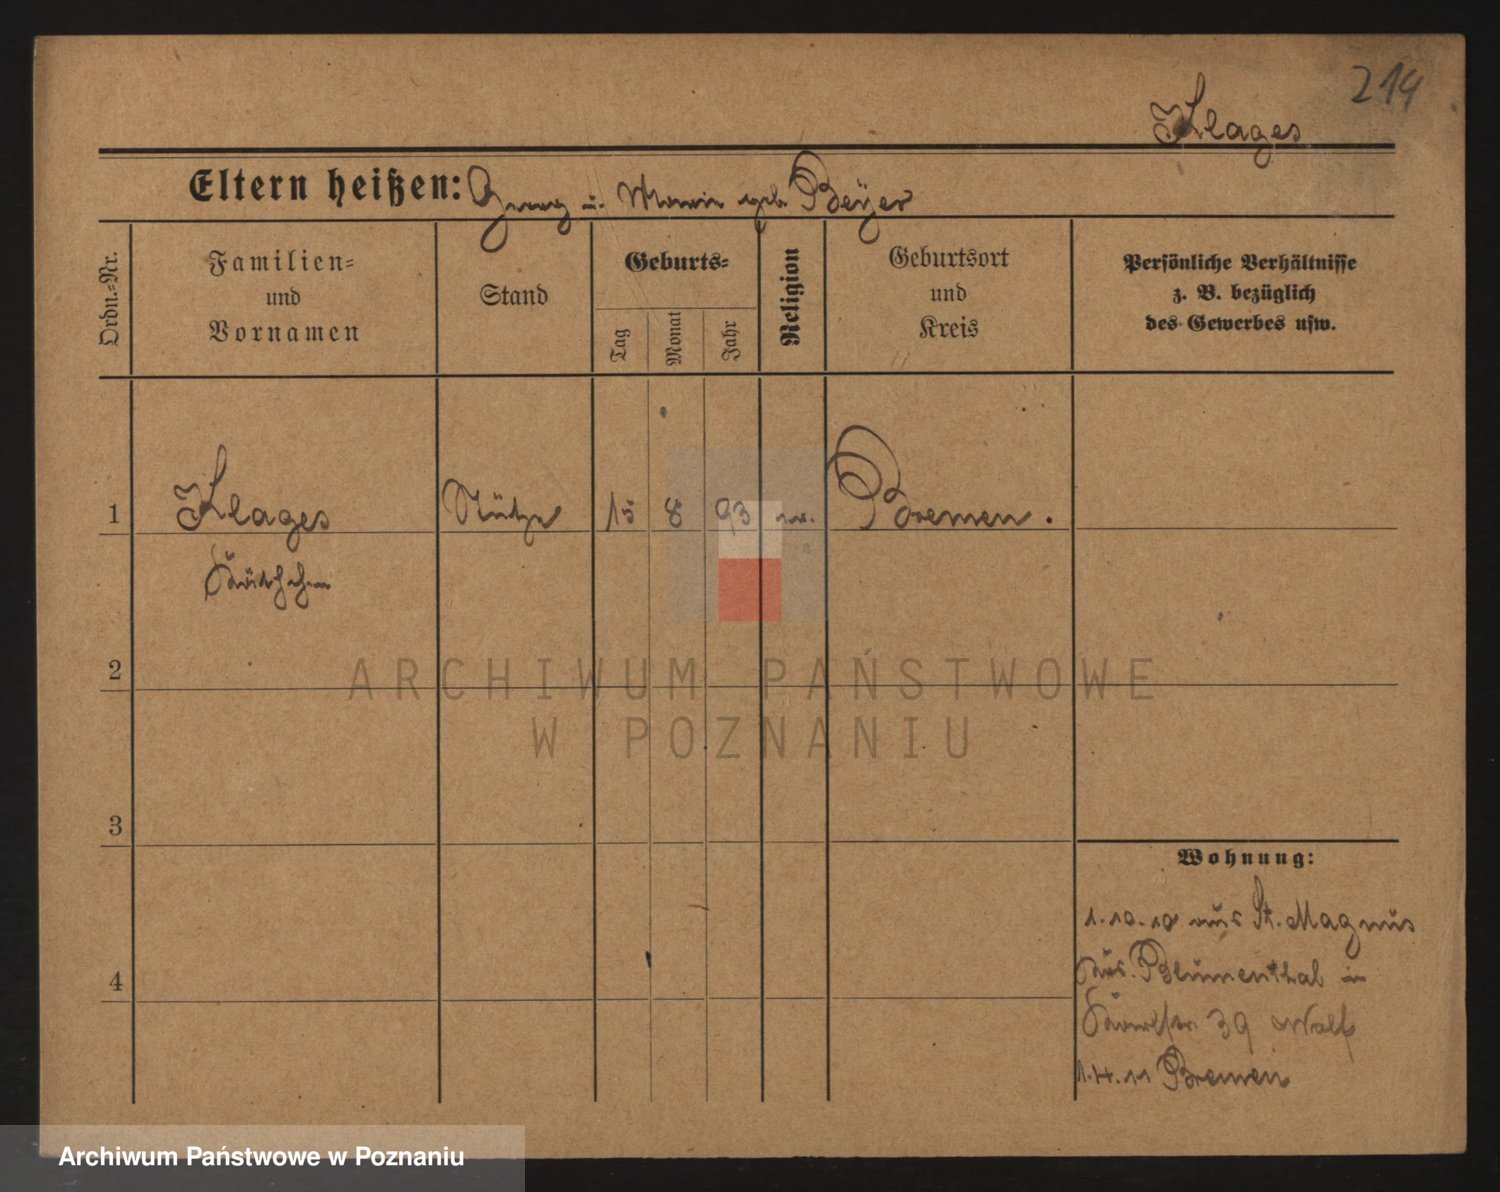 214
Klages
Eltern heißen: Georg u. Marie geb. Beÿer
Ordn.-Nr.
Familien-
und
Vornamen
Stand
Geburts-
Tag
Monat
Jahr
Religion
Geburtsort
und
Kreis
Persönliche Verhältnisse
z. B. bezüglich
des Gewerbes usw.
1 Klages Stütze 15 8 93 ev. Bremen.
Käthchen
2
3
4
Wohnung:
1.10.10 aus St. Magnus
Krs. Blumenthal in
39 Wolff
1.4.11 Bremen
ARCHIWUM PAŃSTWOWE
W POZNANIU
Archiwum Państwowe w Poznaniu